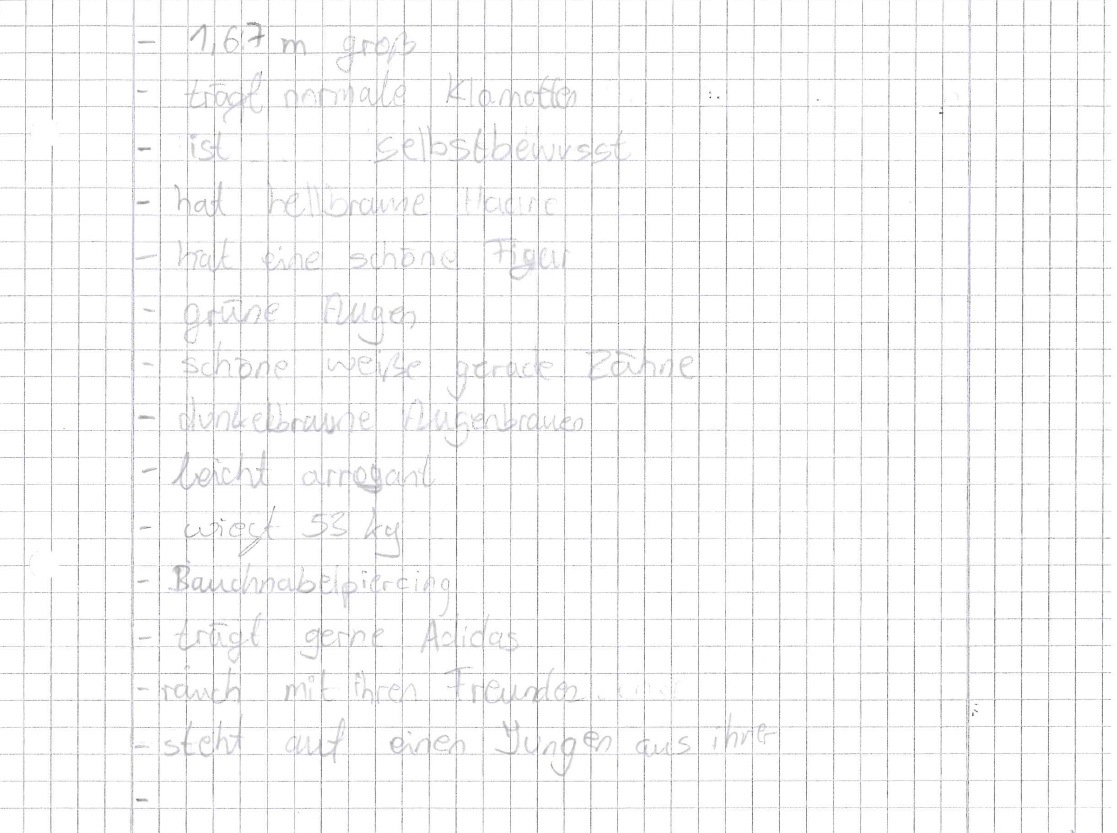 - 1,67 m groß
- trägt normale Klamotten
- ist selbstbewusst
- hat hellbraune Haare
- hat eine schöne Figur
- grüne Augen
- schöne weiße gerade Zähne
- dunkelbraune Augenbrauen
- leicht arrogant
- wiegt 53 kg
- Bauchnabelpiercing
- trägt gerne Adidas
- rauch mit ihren Freunden
- steht auf einen Jungen aus ihre
-